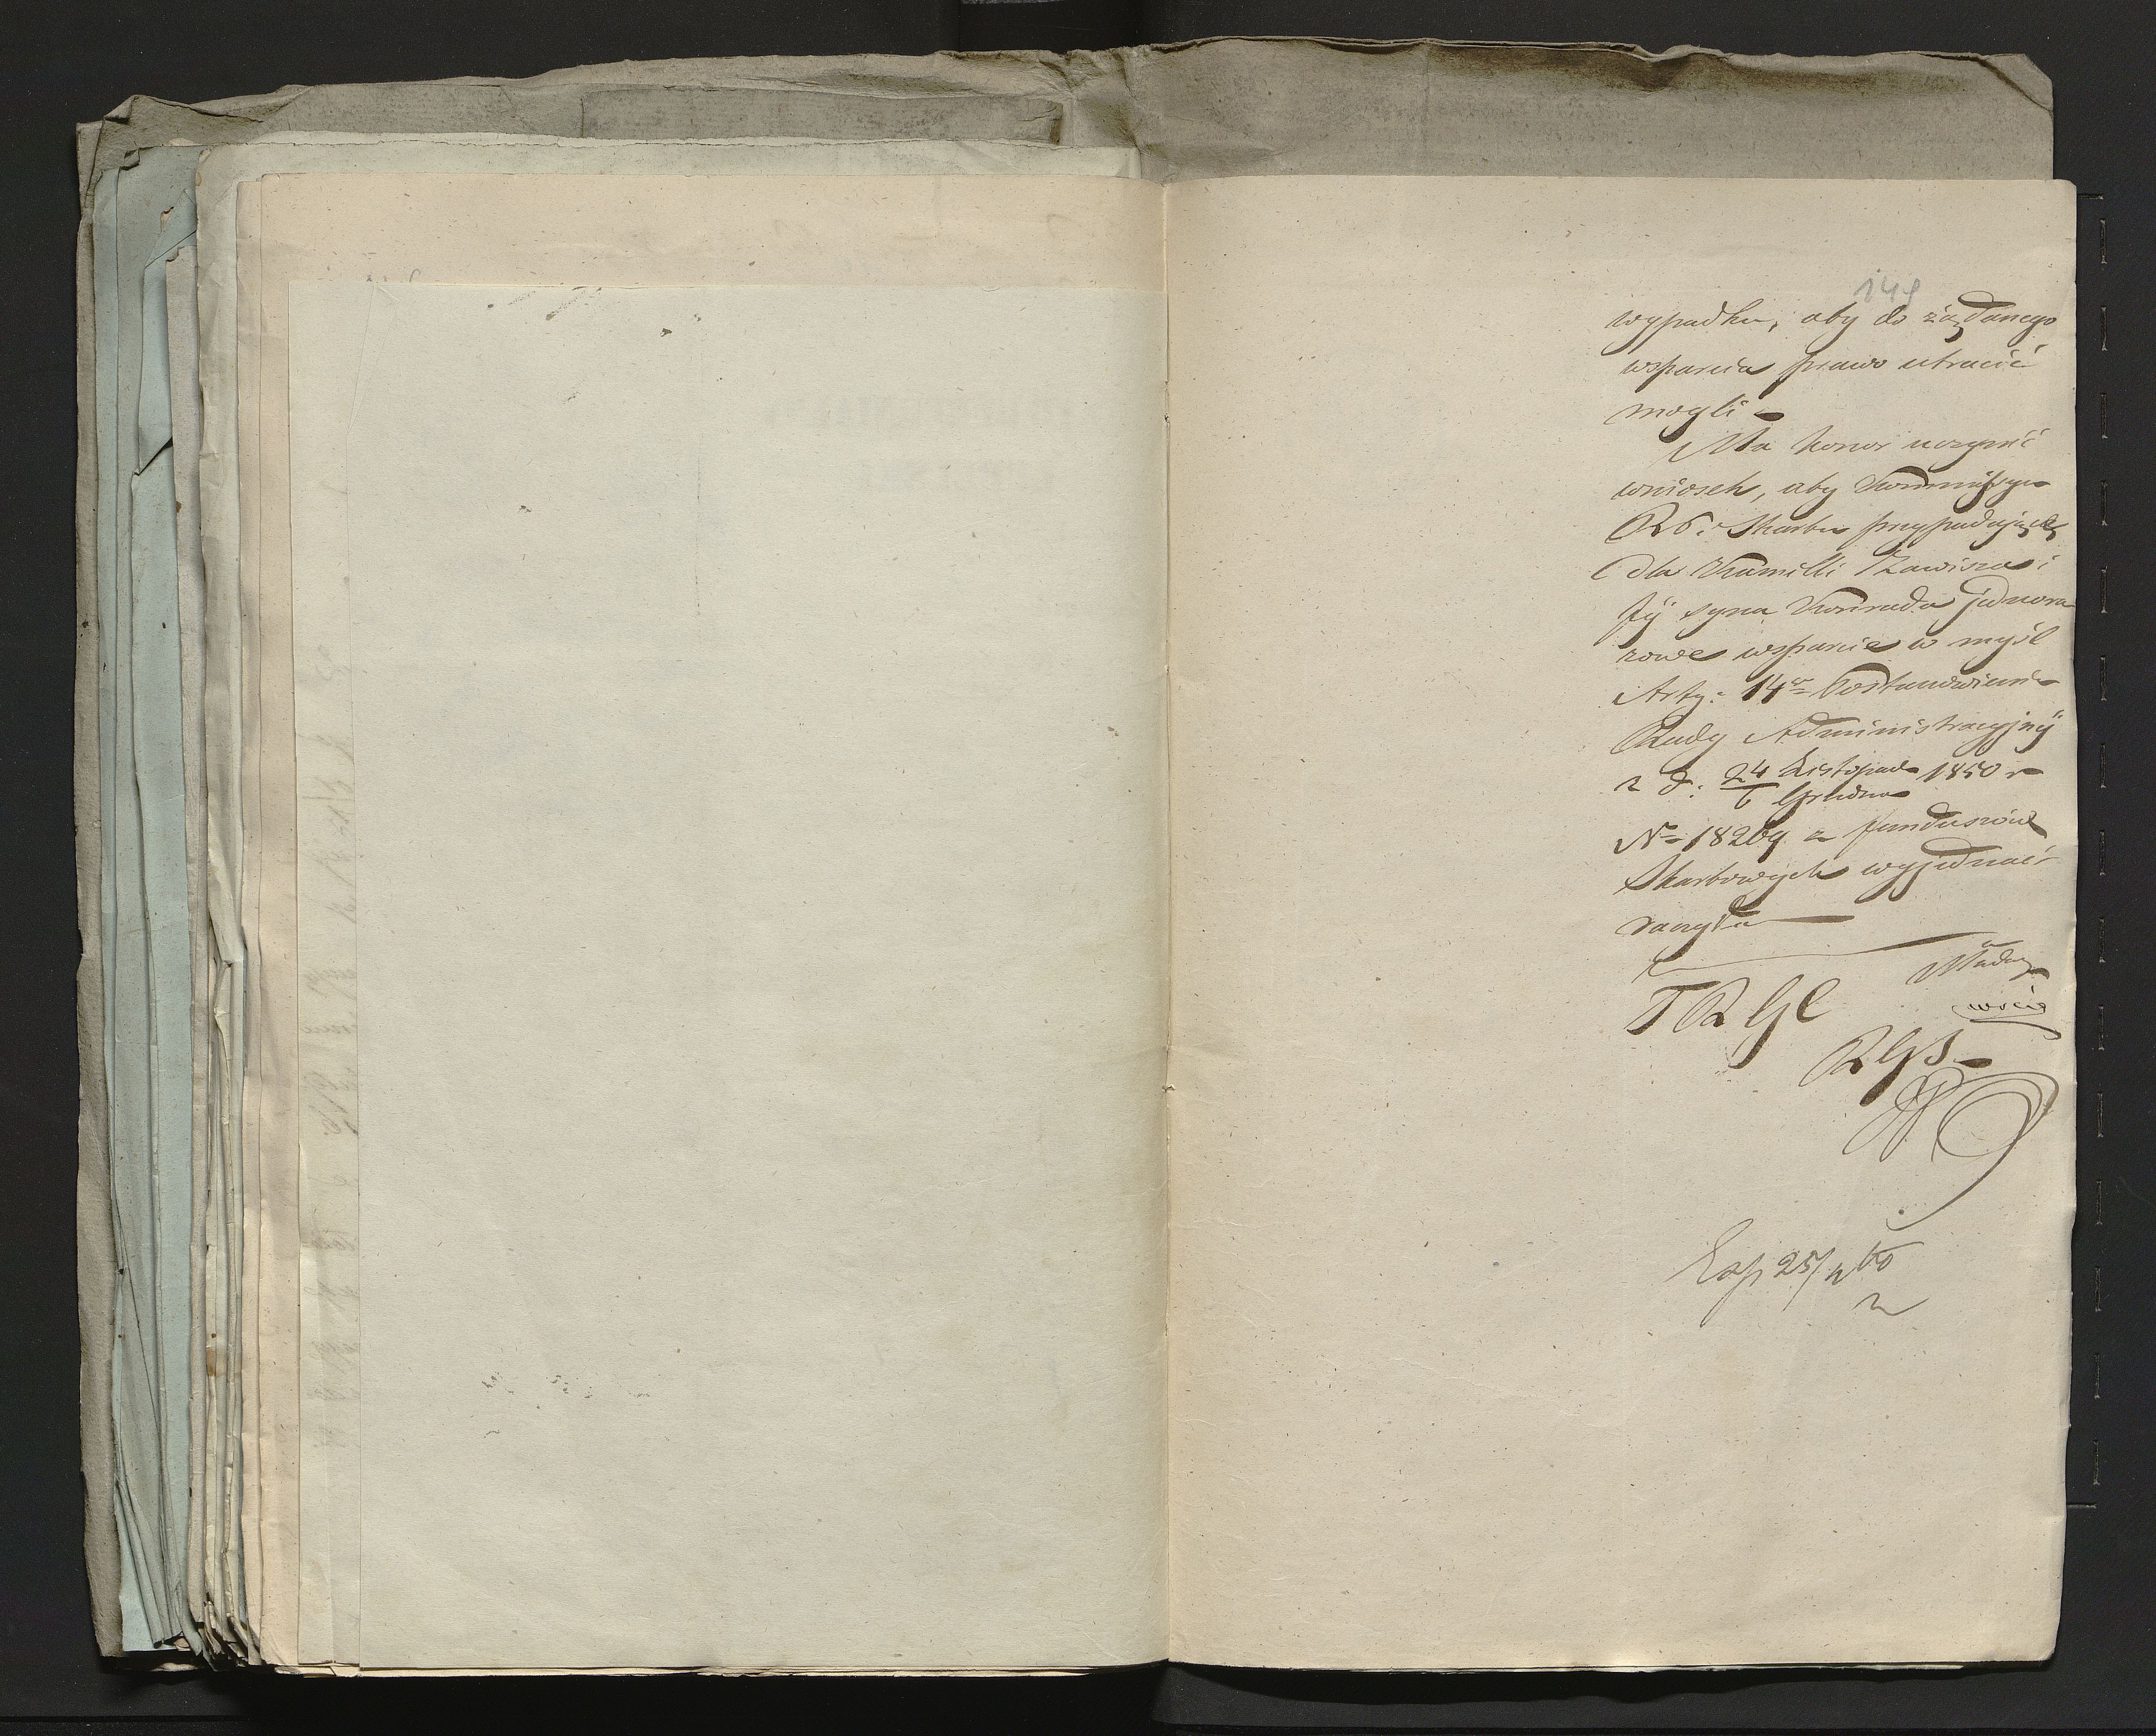 149
wypadku, aby do żądanego
wsparcia prawo utracić
mogli
Ma honor uczynić
wniosek, aby Kommissya
Rz. Skarbu przypadające
dla Kamilli Zawisza i
Jéj syna Konrada jednora
zowe wsparcie w myśl
Arty: 14 Postanowienia
Rady Administracyjnéj
z d: 24 Listopada / 6 Grudnia 1850 r
No 18269 z funduszów
Skarbowych wyjednać
raczyła
RGS
Exp 25/